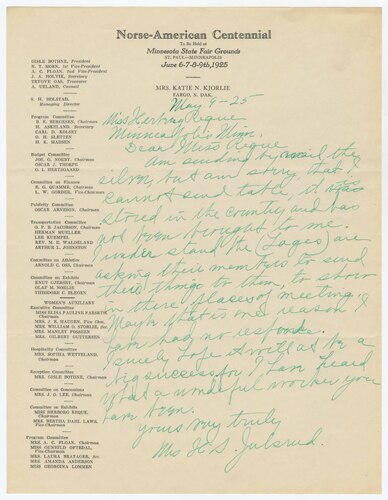 Norse-American Centennial
To Be Held at
Minnesota State Fair Grounds
ST. PAUL—MINNEAPOLIS
June 6-7-8-9th, 1925
GISLE BOTHNE, President
N. T. MOEN, 1st Vice-President
A. C. FLOAN, 2nd Vice-President
J. A. HOLVIK, Secretary
TRYGVE OAS, Treasurer
A. UELAND, Counsel
S. H. HOLSTAD,
Managing Director
Program Committee
B. E. BERGESEN, Chairman
H. ASKELAND, Secretary
CARL D. KOLSET
O. H. SLETTEN
H. K. MADSEN
Budget Committee
JOS. G. NORBY, Chairman
OSCAR J. THORPE
O. I. HERTSGAARD
Committee on Finance
E. G. QUAMME, Chairman
L. W. GJERDE, Vice-Chairman
Publicity Committee
OSCAR ARNESON, Chairman
Transportation Committee
G. F. B. JACOBSON, Chairman
HERMAN MUELLER
LEE KUEMPEL
REV. M. E. WALDELAND
ARTHUR L. JOHNSTON
Committee on Athletics
ARNOLD C. OSS, Chairman
Committee on Exhibits
KNUT GJERSET, Chairman
OLAF M. NORLIE
THEODORE C. BLEGEN
WOMEN'S AUXILIARY
Executive Committee
Chairman
MRS. WILLIAM O. STORLIE, Sec.
MRS. MANLEY FOSSEEN
MRS. GILBERT GUTTERSEN
Hospitality Committee
MRS. SOFTHA WETTELAND,
Chairman
Reception Committee
MRS. GISLE BOTHNE, Chairman
Committee on Concessions
MRS. J. O. LEE, Chairman
Committee on Exhibits
MISS HERBORG REQUE,
Chairman
MRS. BERTHA DAHL LAWS,
Vice-Chairman
Program Committee
MRS. A. C. FLOAN, Chairman
MISS GUNHILD OFTEDAL,
Vice-Chairman
MRS. LAURA BRATAGER, Sec.
MRS. AMANDA ANDERSON
MISS GEORGINA LOMMEN
MRS. KATIE N. KJORLIE
FARGO, N. DAK.
May 9-25
Miss Herborg Reque
Minneapolis Minn.
Dear Miss Reque
Am sending by mail the
silver, but am sorry that I
cannot send table, it was
stored in the country and has
not been brought to me.
I under stand the (Lages) are
asking their members to send
their things to them, to show
in their places of meeting.
Maybe that is one reason I
have had no responses.
I surely hope it will all be a
big success, for I have heard
what a wonderful worker you
have been.
Yours very truly
Mrs H. S.